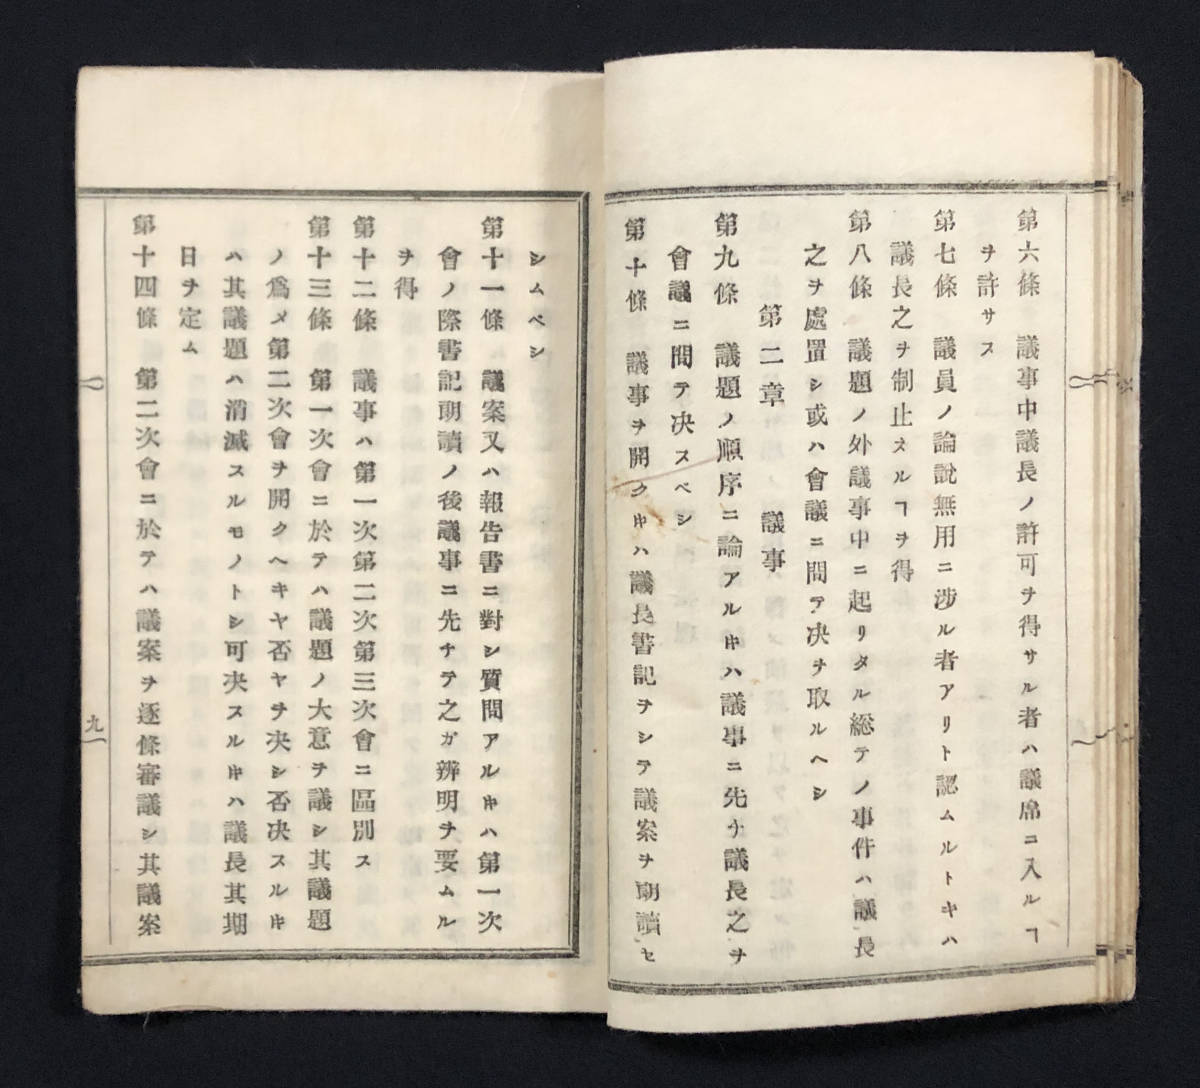 第六條　議事中議長ノ許可ヲ得サル者ハ議席ニ入ルヿ
ヲ許サス
第七條　議員ノ論說無用ニ涉ル者アリト認ムルトキハ
議長之ヲ制止スルヿヲ得
第八條　議題ノ外議事中ニ起リタル総テノ事件ハ議長
之ヲ處置シ或ハ會議ニ問テ决ヲ取ルヘシ
第二章　議事
第九條　議題ノ順序ニ論アルキハ議事ニ先チ議長之ヲ
會議ニ問テ决スベシ
第十條　議事ヲ開クキハ議長書記ヲシテ議案ヲ朗讀セ
シムベシ
第十一條　議案又ハ報告書ニ對シ質問アルキハ第一次
會ノ際書記朗讀ノ後議事ニ先チテ之ガ辨明ヲ要ムル
ヲ得
第十二條　議事ハ第一次第二次第三次會ニ區別ス
第十三條　第一次會ニ於テハ議題ノ大意ヲ議シ其議題
ノ爲メ第二次會ヲ開クヘキヤ否ヤヲ决シ否决スルキ
ハ其議題ハ消滅スルモノトシ可决スルキハ議長其期
日ヲ定ム
第十四條　第二次會ニ於テハ議案ヲ逐條審議シ其議案
九